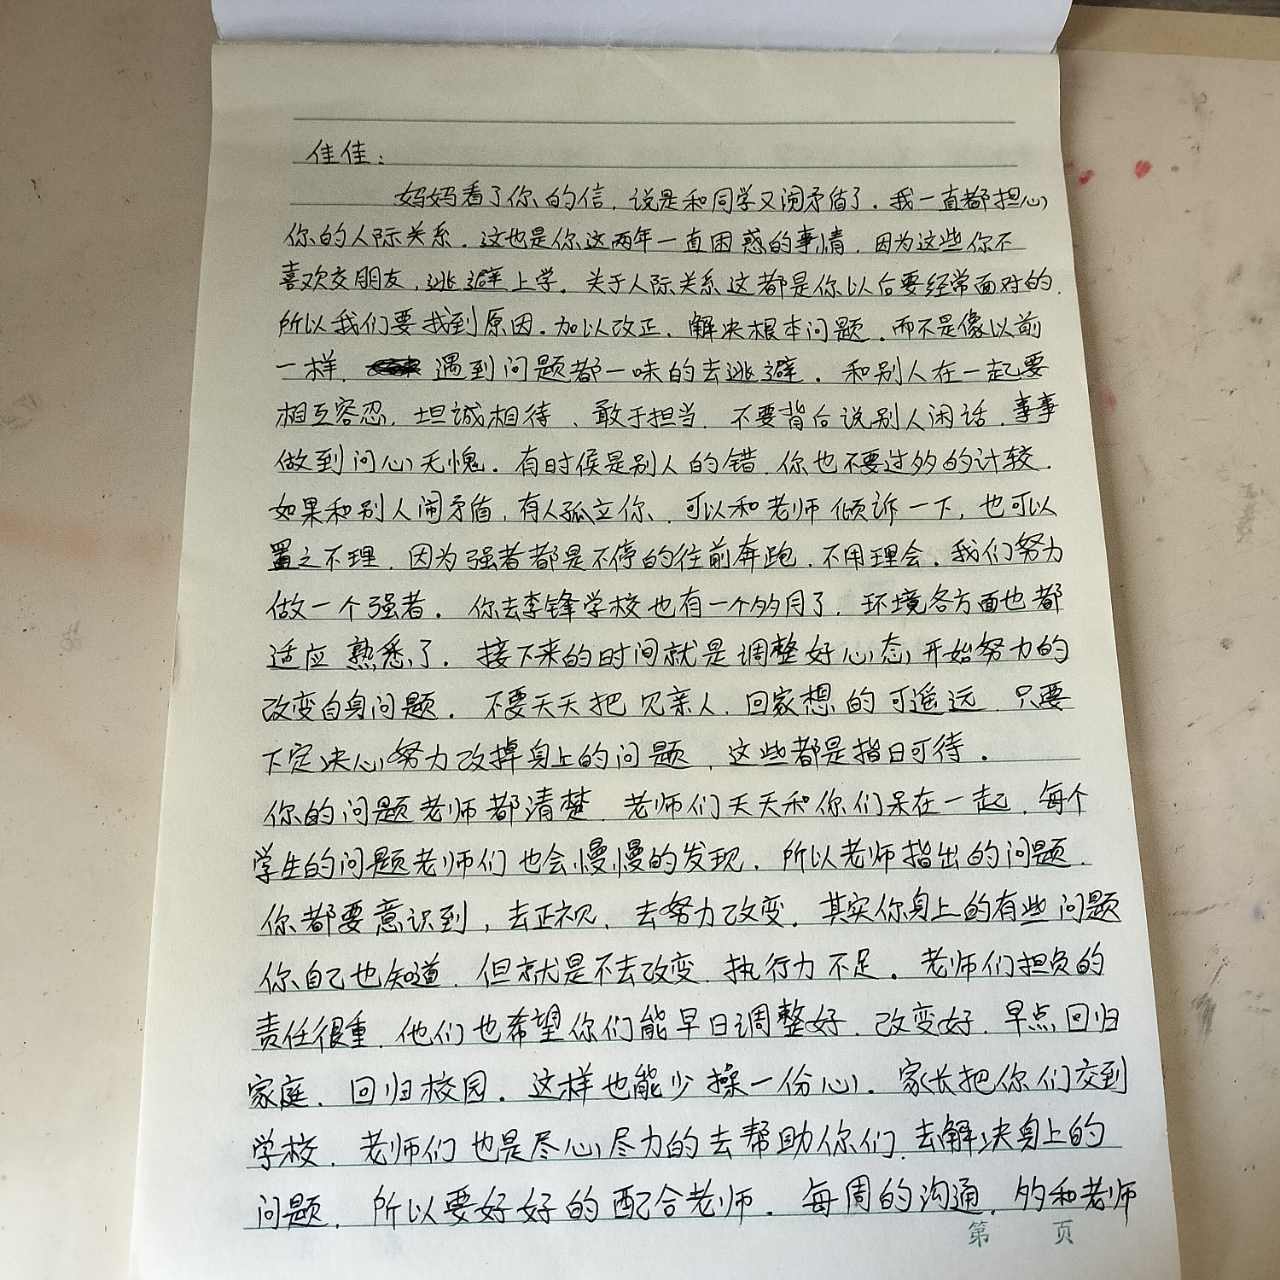 佳佳：
妈妈看了你的信，说是和同学又闹矛盾了。我一直都担心
你的人际关系。这也是你这两年一直困惑的事情，因为这些你不
喜欢交朋友，逃避上学。关于人际关系这都是你以后要经常面对的，
所以我们要找到原因。加以改正、解决根本问题。而不是像以前
一样，遇到问题都一味的去逃避。和别人在一起要
相互容忍，坦诚相待、敢于担当，不要背后说别人闲话，事事
做到问心无愧。有时候是别人的错，你也不要过多的计较，
如果和别人闹矛盾，有人孤立你、可以和老师倾诉一下，也可以
置之不理，因为强者都是不停的往前奔跑，不用理会。我们努力
做一个强者。你去李锋学校也有一个多月了，环境各方面也都
适应熟悉了。接下来的时间就是调整好心态，开始努力的
改变自身问题。不要天天把见亲人，回家想的可遥远，只要
下定决心努力改掉身上的问题，这些都是指日可待。
你的问题老师都清楚，老师们天天和你们呆在一起，每个
学生的问题老师们也会慢慢的发现，所以老师指出的问题，
你都要意识到，去正视，去努力改变，其实你身上的有些问题
你自己也知道，但就是不去改变，执行力不足。老师们担负的
责任很重，他们也希望你们能早日调整好，改变好，早点回归
家庭、回归校园。这样也能少操一份心。家长把你们交到
学校，老师们也是尽心尽力的去帮助你们，去解决身上的
问题，所以要好好的配合老师。每周的沟通，多和老师
第 页